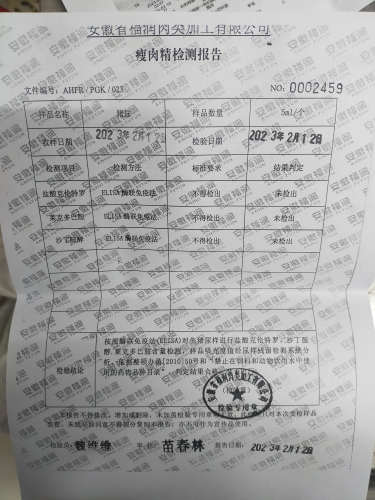 安徽省福润肉类加工有限公司
瘦肉精检测报告
文件编号：AHFR/PGK/023 NO：0002459
样品名称 猪尿 样品数量 5ml/个
收样日期 2023年2月12日 检验日期 2023年2月12日
检测项目 检测方法 标准要求 结果判定
盐酸克伦特罗 ELISA酶联免疫法 不得检出 未检出
莱克多巴胺 ELISA酶联免疫法 不得检出 未检出
沙丁胺醇 ELISA酶联免疫法 不得检出 未检出
检验结论
按酶联免疫法(ELISA)对生猪尿样进行盐酸克伦特罗、沙丁胺
醇、莱克多巴胺含量检测，样品吸光度值经尿样残留检测系统分
析，依据 [2010]50号和“禁止在饲料和动物饮用水中使
用的药物品种目录”，判定结果合格。
安徽省福润肉类加工有限公司
检验专用章
本报告不得修改、增加或删除，未加盖检验专用章
检验员： 魏维维 审核： 苗春林 报告日期： 2023年2月12日